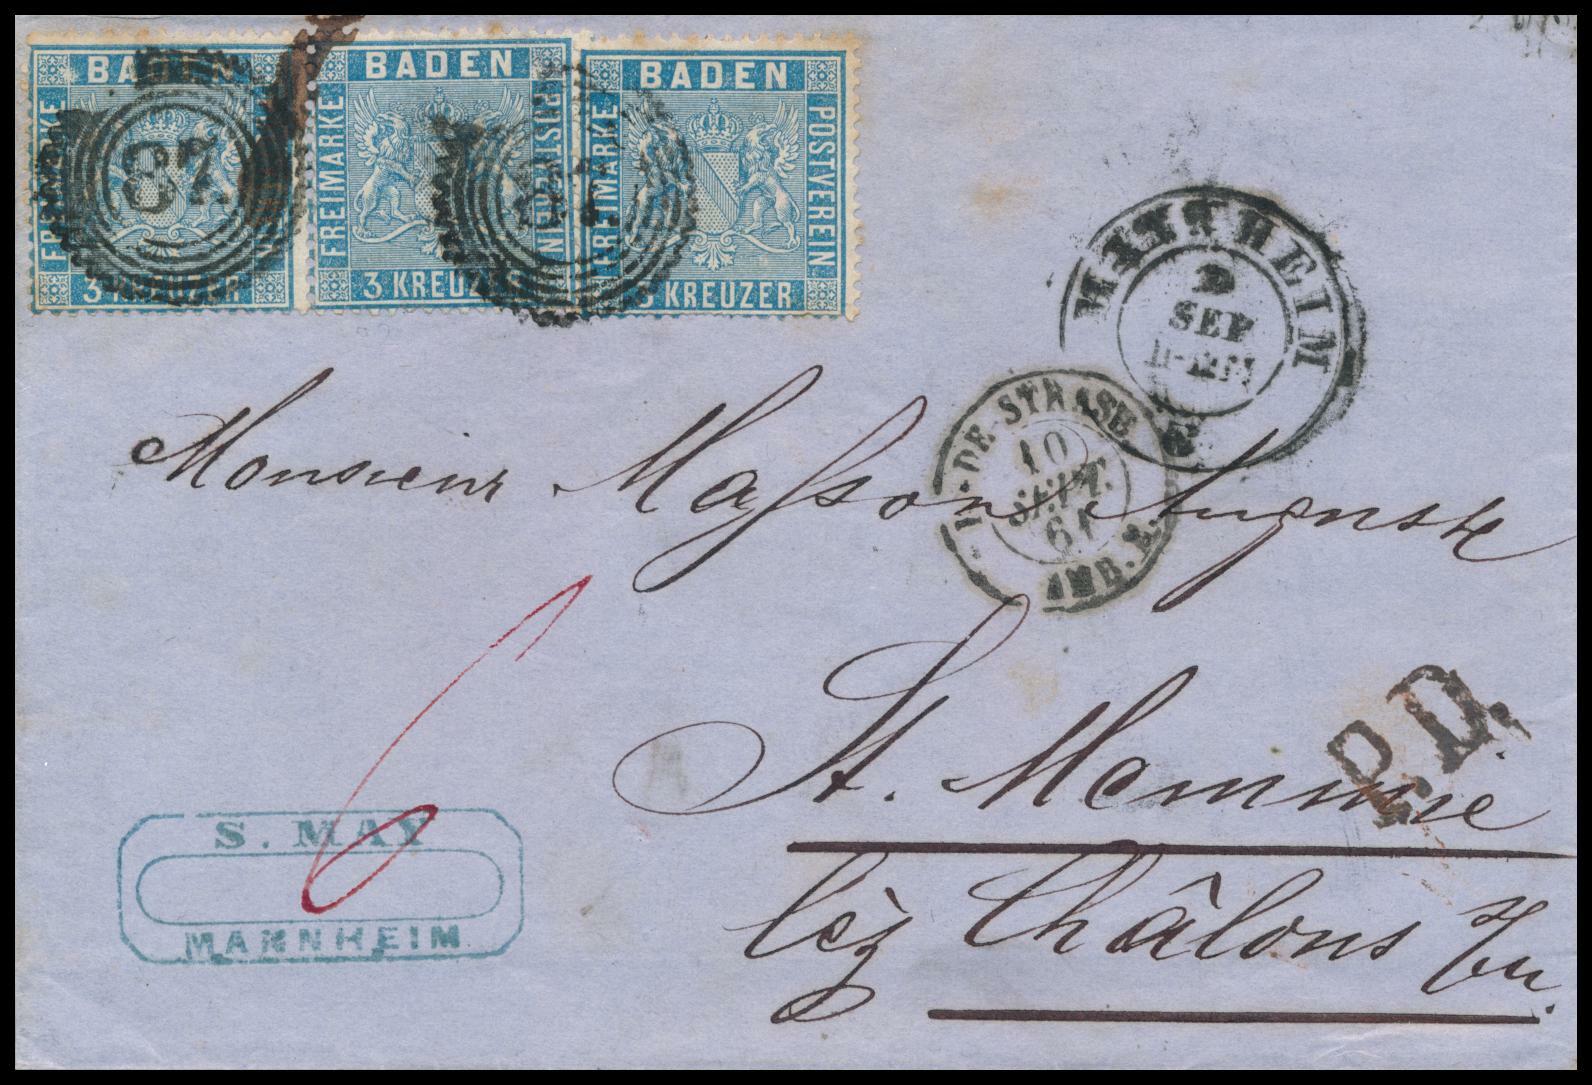 BADEN
FREIMARKE
3 KREUZER
87
BADEN
FREIMARKE
3 KREUZER
87
BADEN
FREIMARKE
POSTVEREIN
3 KREUZER
MANNHEIM
9
SEP
DE-STRASB
10
SEPT.
61
AMB. B.
Monsieur Masson Auguste
P.D.
6
St. Memmie
lèz Châlons s/m.
S. MAY
MANNHEIM